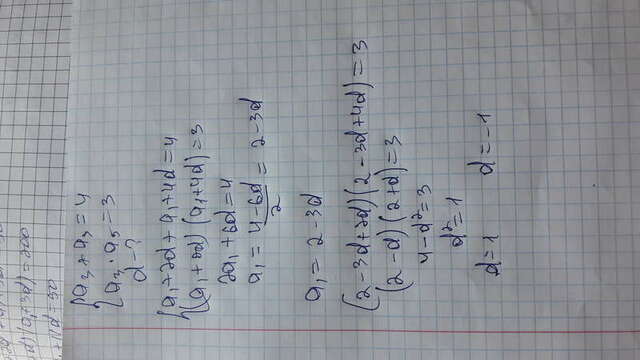 d)(a₁+3d)=200
+11d=50
{a₃+a₅=4
{a₃·a₅=3
d-?
{a₁+2d+a₁+4d=4
{(a₁+2d)(a₁+4d)=3
2a₁+6d=4
a₁=4-6d/2=2-3d
a₁=2-3d
(2-3d+2d)(2-3d+4d)=3
(2-d)(2+d)=3
4-d²=3
d²=1
d=1 d=-1